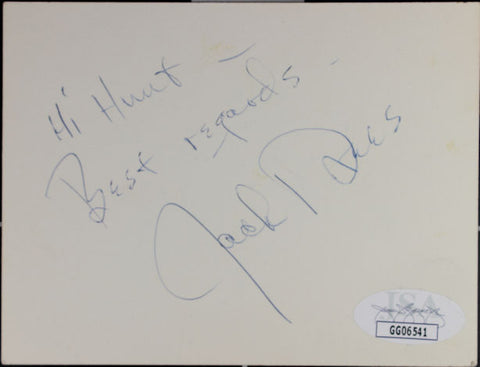 Hi Hunt –
Best regards –
Jack
JSA
GG06541